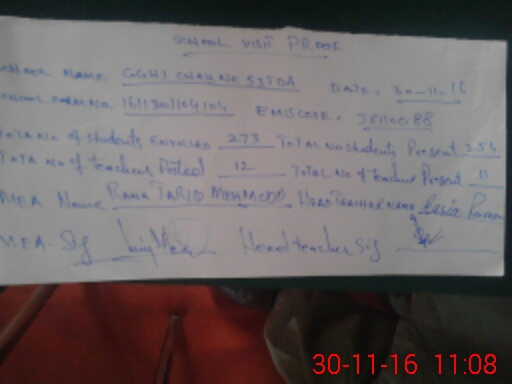 SCHOOL VISIT PROOF
SCHOOL NAME GGHS CHAK NO 537DA DATE: 30-11-16
SCHOOL FORM NO. 1611301104104 EMISCODE: 38110088
TOTA NO of students ENROLLED 273 TOTAL NO students Present 254
TOTA NO of teachers Posted 12 TOTAL NO of teachers Present 11
MEA Name RANA TARIQ MEHMOOD HEADTEACHER NAME
MEA. Sig Headteacher Sig
30-11-16 11:08